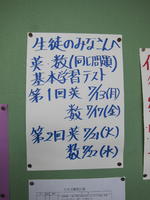 生徒のみなさんへ
英・数(同じ問題)
基本学習テスト
第1回英 7/13(月)
数 7/17(金)
第2回英 7/21(火)
数 7/22(水)